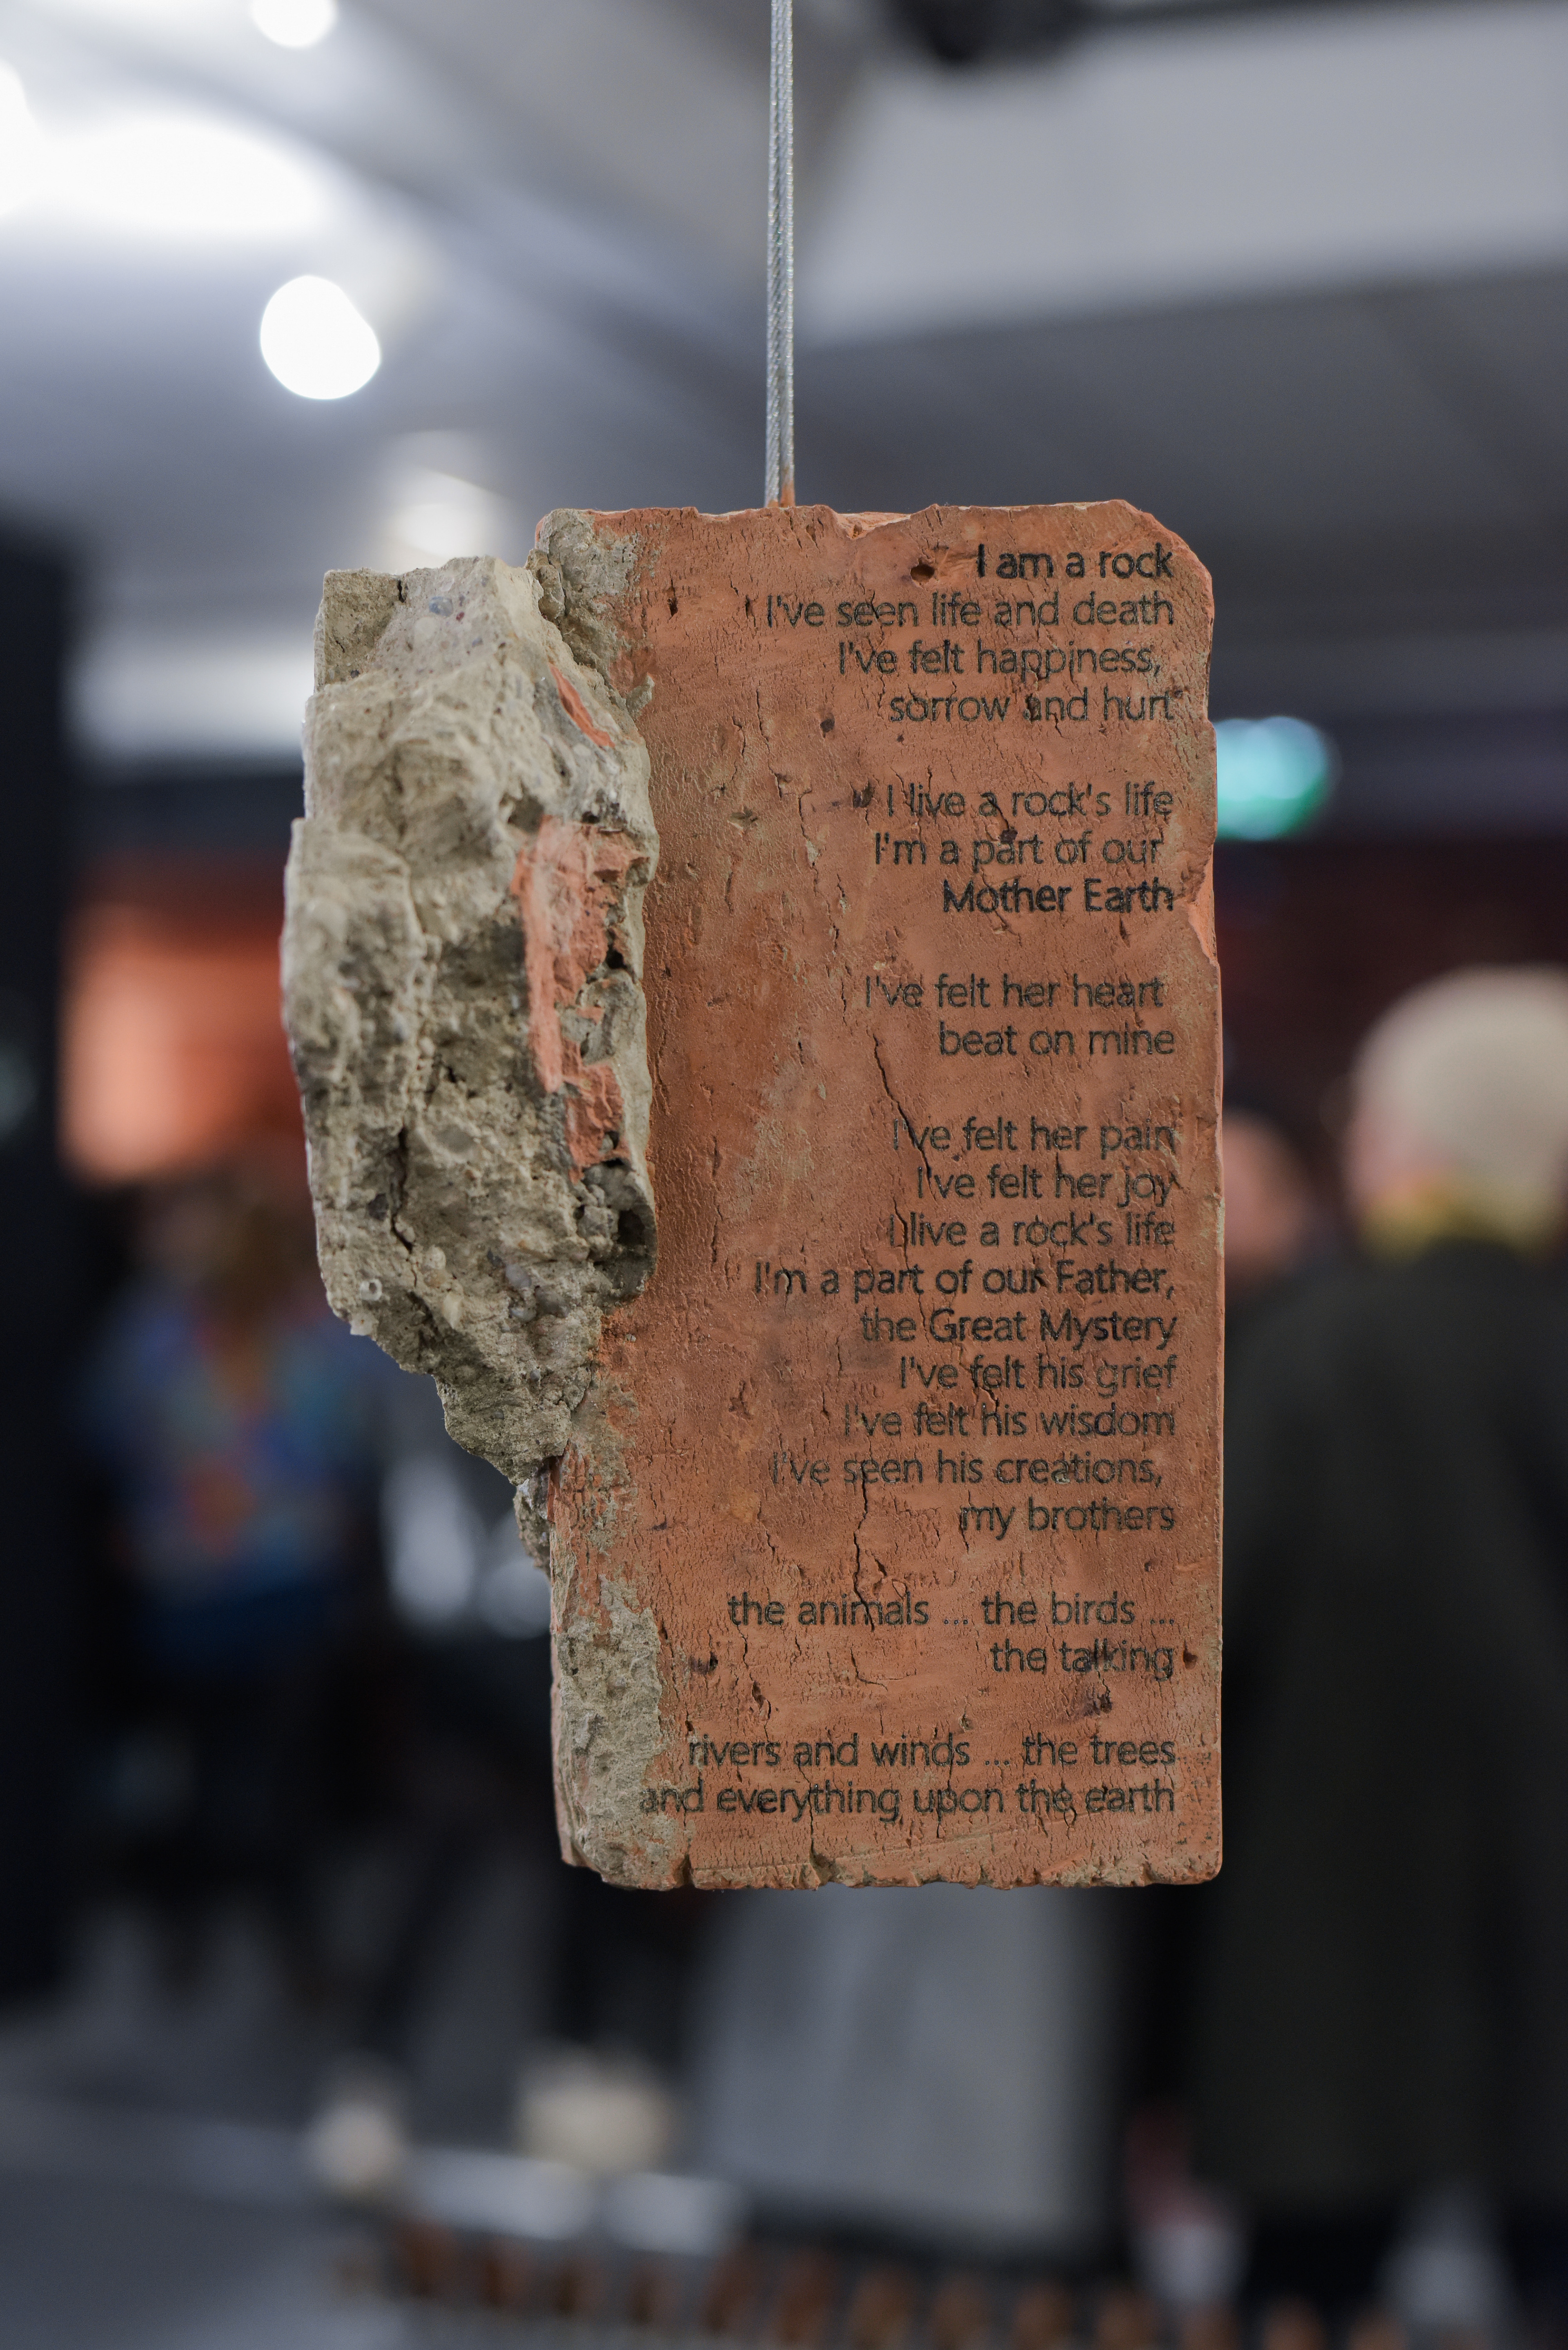 I am a rock
I've seen life and death
I've felt happiness,
sorrow and hurt
I live a rock's life
I'm a part of our
Mother Earth
I've felt her heart
beat on mine
I've felt her pain
I've felt her joy
I live a rock's life
I'm a part of our Father,
the Great Mystery
I've felt his grief
I've felt his wisdom
I've seen his creations,
my brothers
the animals ... the birds ...
the talking
rivers and winds ... the trees
and everything upon the earth